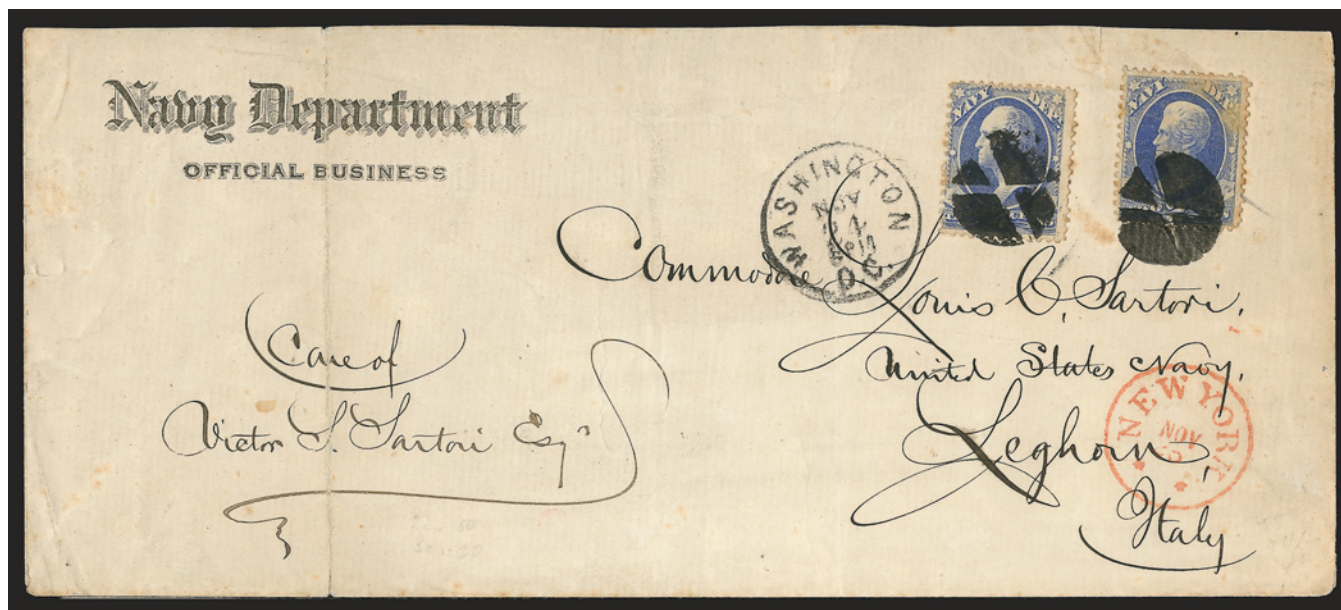 Navy Department
OFFICIAL BUSINESS
NAVY DEPT
NAVY DEPT
WASHINGTON
NOV
4
D.C.
Commodore Louis C. Sartori,
United States Navy,
Leghorn,
Italy
NEW YORK
NOV
Care of
Victor S. Sartori Esqr